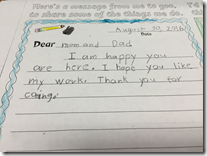 Here's a message from me to you,
to share some of the things me do.
August 30, 2016
Date
Dear mom and Dad
I am happy you
are here. I hope you like
my work. Thank you for
coming.